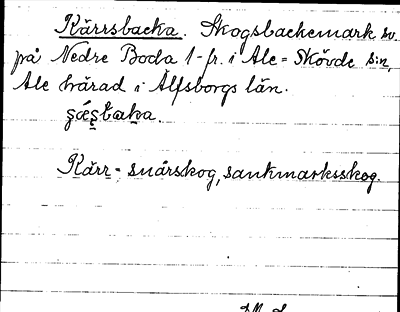 Kärrsbacka. Skogsbackemark sv.
på Nedre Boda 1-fr. i Ale-Skövde s:n,
Ale härad i Älfsborgs län.
Kärr = snårskog, sankmarksskog.